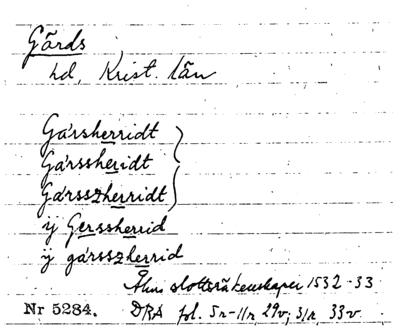 Gärds
hd, Krist. län
Gársherridt
Gárssheridt
Gársszherridt
ij Gerssherrid
ij gársszherrid
Åhus slotträkenskaper 1532-33
Nr 5284. DRA fol. 5r-11r 29v; 31r 33v.